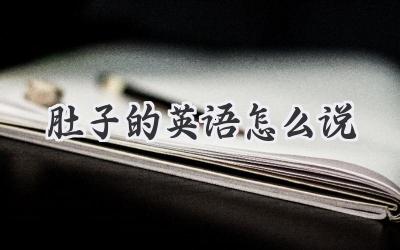 肚子的英语怎么说